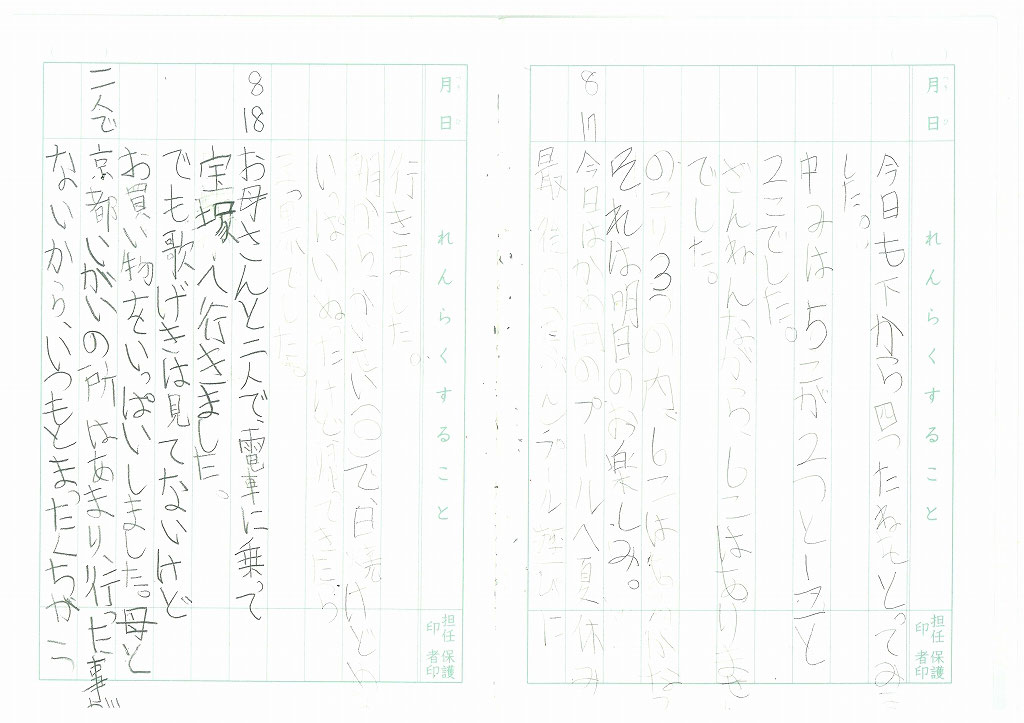 月日
れんらくすること
担任印
保護者印
今日も下から四つたねをとってみ
した。
中みは5こが2つと1こと
2こでした。
ざんねんながら、6こはありませ
でした。
のこり3つの内、6こは
それは明日のお楽しみ。
8 17 今日はかめ岡のプールへ夏休み
最後の プール遊びに
月日
れんらくすること
担任印
保護者印
行きました。
明からかいさい(〇)で、日焼けどめ
いっぱいぬったけど
でした。
8 18 お母さんと二人で、電車に乗って
宝塚へ行きました。
でも歌げきは見てないけど
お買い物をいっぱいしました。母と
二人で京都いがいの所はあまり、行った事が
ないから、いつもとまったくちがう